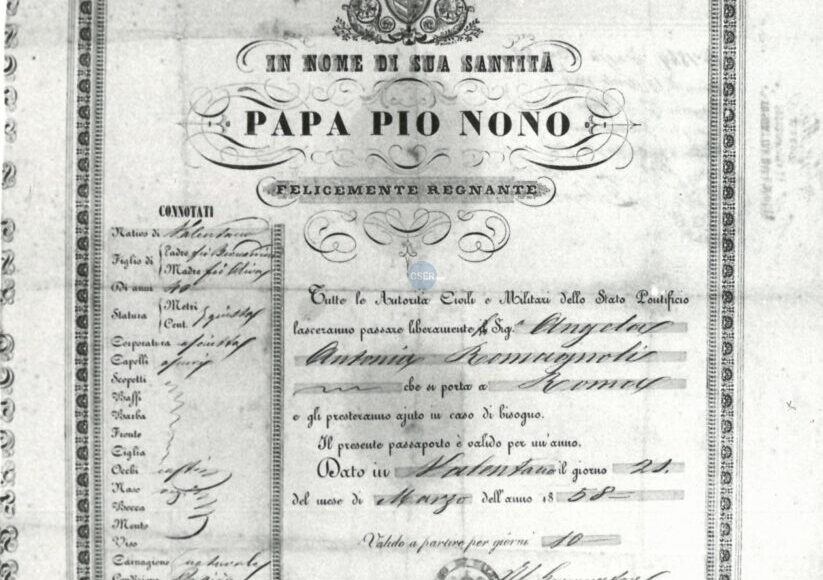 IN NOME DI SUA SANTITÀ
PAPA PIO NONO
FELICEMENTE REGNANTE
CONNOTATI
Nativo di Valentano
Figlio di Padre fù Bernardino
Madre fù Oliva
Di anni 40
Statura Metri
Cent. giusta
Corporatura giusta
Capelli
Scopetti
Baffi
Barba
Fronte
Ciglia
Occhi
Naso
Bocca
Mento
Viso
Carnagione naturale
Condizione
CSER
Tutte le Autorità Civili e Militari dello Stato Pontificio
lasceranno passare liberamente Sig.ª Angela
Antonia Romagnoli
che si porta a Roma
e gli presteranno ajuto in caso di bisogno.
Il presente passaporto è valido per un'anno.
Dato in Valentano il giorno 21.
del mese di Marzo dell'anno 1858
Valido a partire per giorni 10